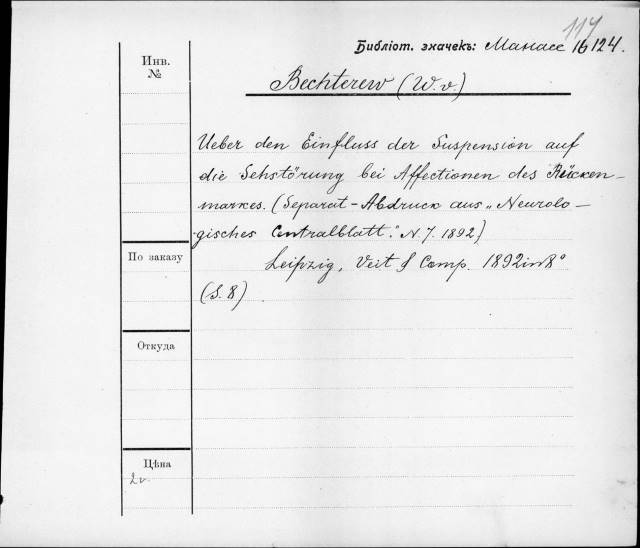 117
Библіот. значекъ: Манасс 16124.
Инв.
№
Bechterew (W. v.)
Ueber den Einfluss der Suspension auf
die Sehstörung bei Affectionen des Rücken-
markes. (Separat-Abdruck aus „Neurolo-
gisches Centralblatt." N 7. 1892)
По заказу
Leipzig, Veit & Comp. 1892 in 8°
(S. 8)
Откуда
Цѣна